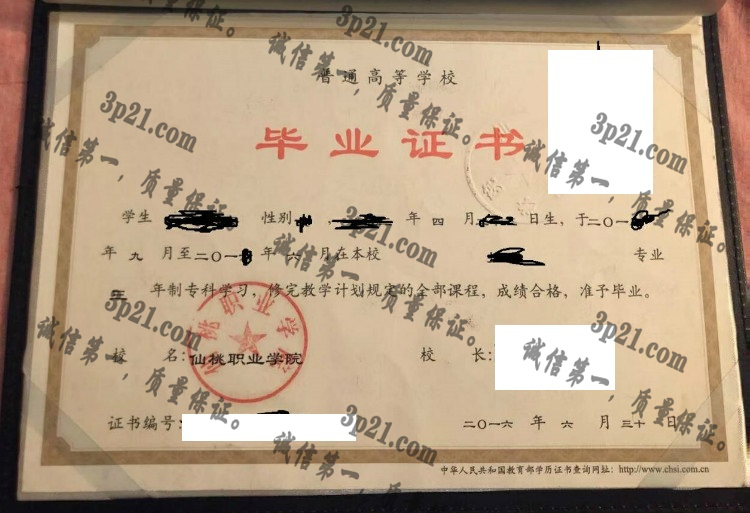 普通高等学校
毕业证书
学生 性别 年 四 月 日生，于二〇一
年 九 月至二〇一 年 六 月在本校 专业
三 年制专科学习，修完教学计划规定的全部课程，成绩合格，准予毕业。
校 名：仙桃职业学院 校 长：
证书编号： 二〇一六 年 六 月 三十 日
中华人民共和国教育部学历证书查询网址：http://www.chsi.com.cn
仙桃职业学院
3p21.com
诚信第一，质量保证。
3p21.com
诚信第一，质量保证。
3p21.com
诚信第一，质量保证。
3p21.com
诚信第一，质量保证。
3p21.com
诚信第一，质量保证。
3p21.com
诚信第一，质量保证。